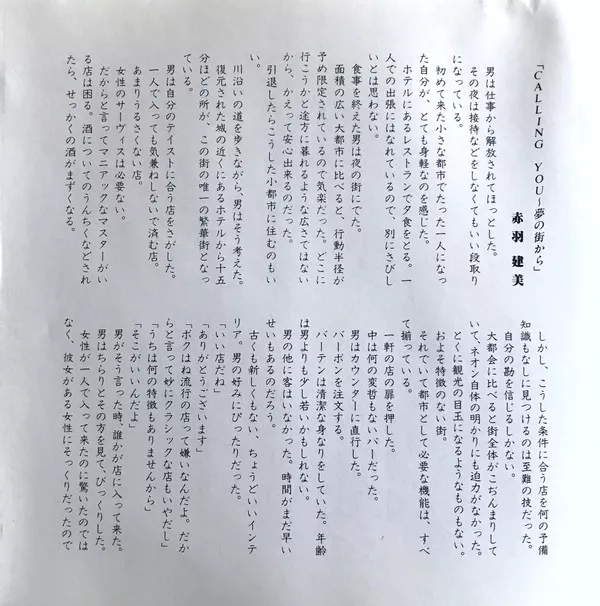 「CALLING YOU〜夢の街から」
赤羽 建美
男は仕事から解放されてほっとした。
その夜は接待などをしなくてもいい段取り
になっている。
初めて来た小さな都市でたった一人になっ
た自分が、とても身軽なのを感じた。
ホテルにあるレストランで夕食をとる。一
人での出張にはなれているので、別にさびし
いとは思わない。
食事を終えた男は夜の街にでた。
面積の広い大都市に比べると、行動半径が
予め限定されているので気楽だった。どこに
行こうかと途方に暮れるような広さではない
から、かえって安心出来るのだった。
引退したらこうした小都市に住むのもい
い。
川沿いの道を歩きながら、男はそう考えた。
復元された城の近くにあるホテルから十五
分ほどの所が、この街の唯一の繁華街となっ
ている。
男は自分のテイストに合う店をさがした。
一人で入っても気兼ねしないで済む店。
あまりうるさくない店。
女性のサーヴィスは必要ない。
だからと言ってマニアックなマスターがい
る店は困る。酒についてのうんちくなどされ
たら、せっかくの酒がまずくなる。
しかし、こうした条件に合う店を何の予備
知識もなしに見つけるのは至難の技だった。
自分の勘を信じるしかない。
大都会に比べると街全体がこぢんまりして
いて、ネオン自体の明かりにも迫力がなかった。
とくに観光の目玉になるようなものもない。
およそ特徴のない街。
それでいて都市として必要な機能は、すべ
て揃っている。
一軒の店の扉を押した。
中は何の変哲もないバーだった。
男はカウンターに直行した。
バーボンを注文する。
バーテンは清潔な身なりをしていた。年齢
は男よりも少し若いかもしれない。
男の他に客はいなかった。時間がまだ早い
せいもあるのだろう。
古くも新しくもない、ちょうどいいインテ
リア。男の好みにぴったりだった。
「いい店だね」
「ありがとうございます」
「ボクはね流行の店って嫌いなんだよ。だか
らと言って妙にクラシックな店もいやだし」
「うちは何の特徴もありませんから」
「そこがいいんだよ」
男がそう言った時、誰かが店に入って来た。
男はちらりとその方を見て、びっくりした。
女性が一人で入って来たのに驚いたのでは
なく、彼女がある女性にそっくりだったので